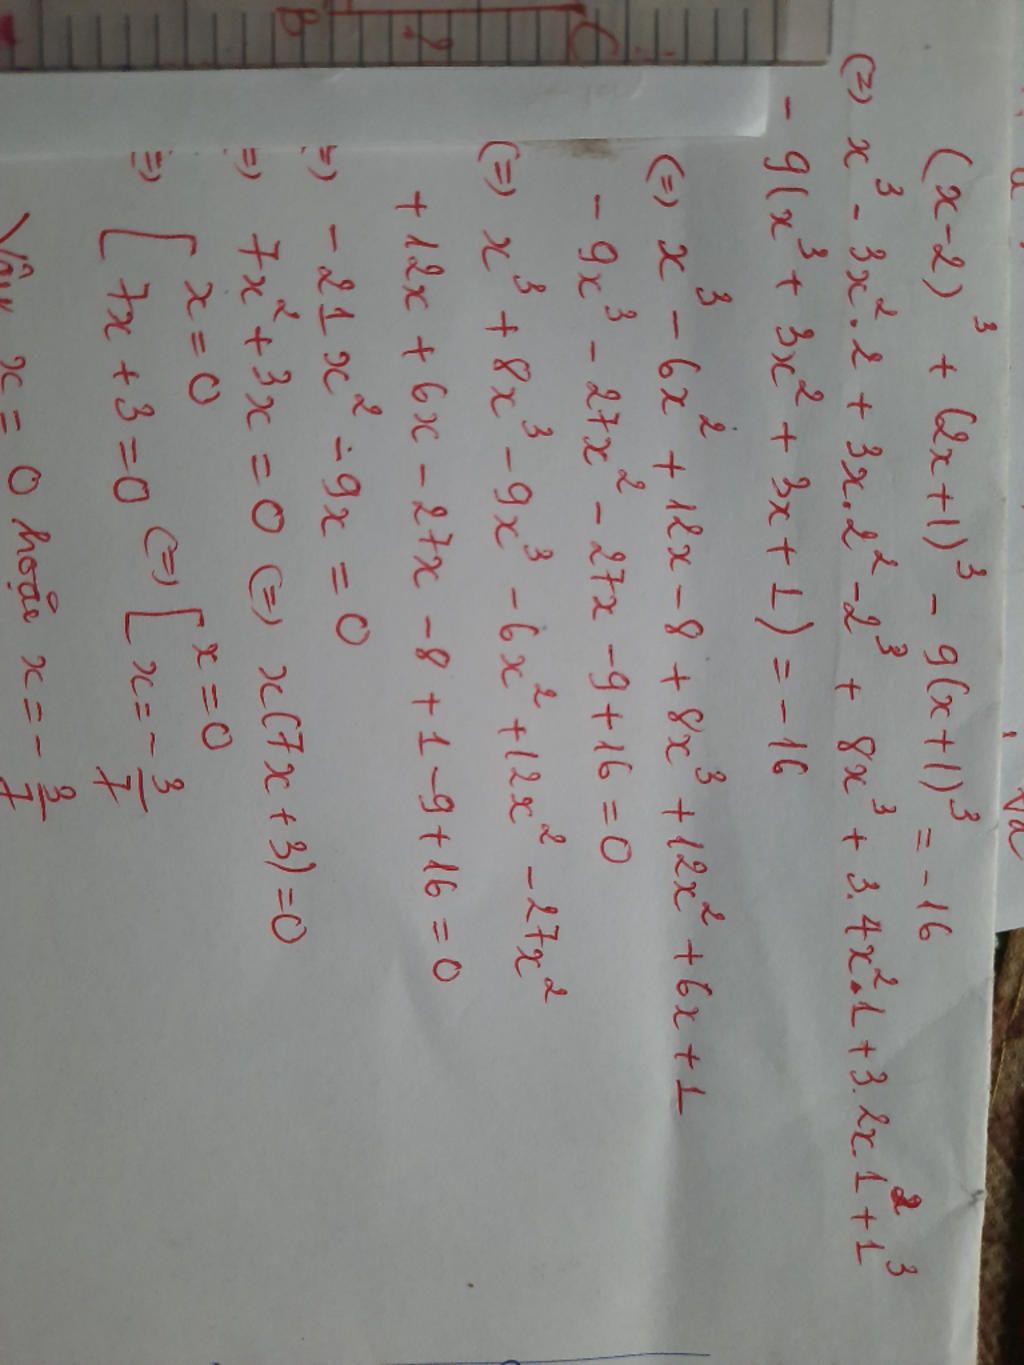 (x-2)³ + (2x+1)³ - 9(x+1)³ = -16
(=) x³ - 3x².2 + 3x.2² - 2³ + 8x³ + 3.4x².1 + 3.2x.1² + 1³
- 9(x³ + 3x² + 3x + 1) = -16
(=) x³ - 6x² + 12x - 8 + 8x³ + 12x² + 6x + 1
- 9x³ - 27x² - 27x - 9 + 16 = 0
(=) x³ + 8x³ - 9x³ - 6x² + 12x² - 27x²
+ 12x + 6x - 27x - 8 + 1 - 9 + 16 = 0
=) - 21x² - 9x = 0
=) 7x² + 3x = 0 (=) x(7x + 3) = 0
=) [ x = 0
7x + 3 = 0 (=) [ x = 0
x = - 3/7
Vậy x = 0 hoặc x = - 3/7
B 2 C
Và